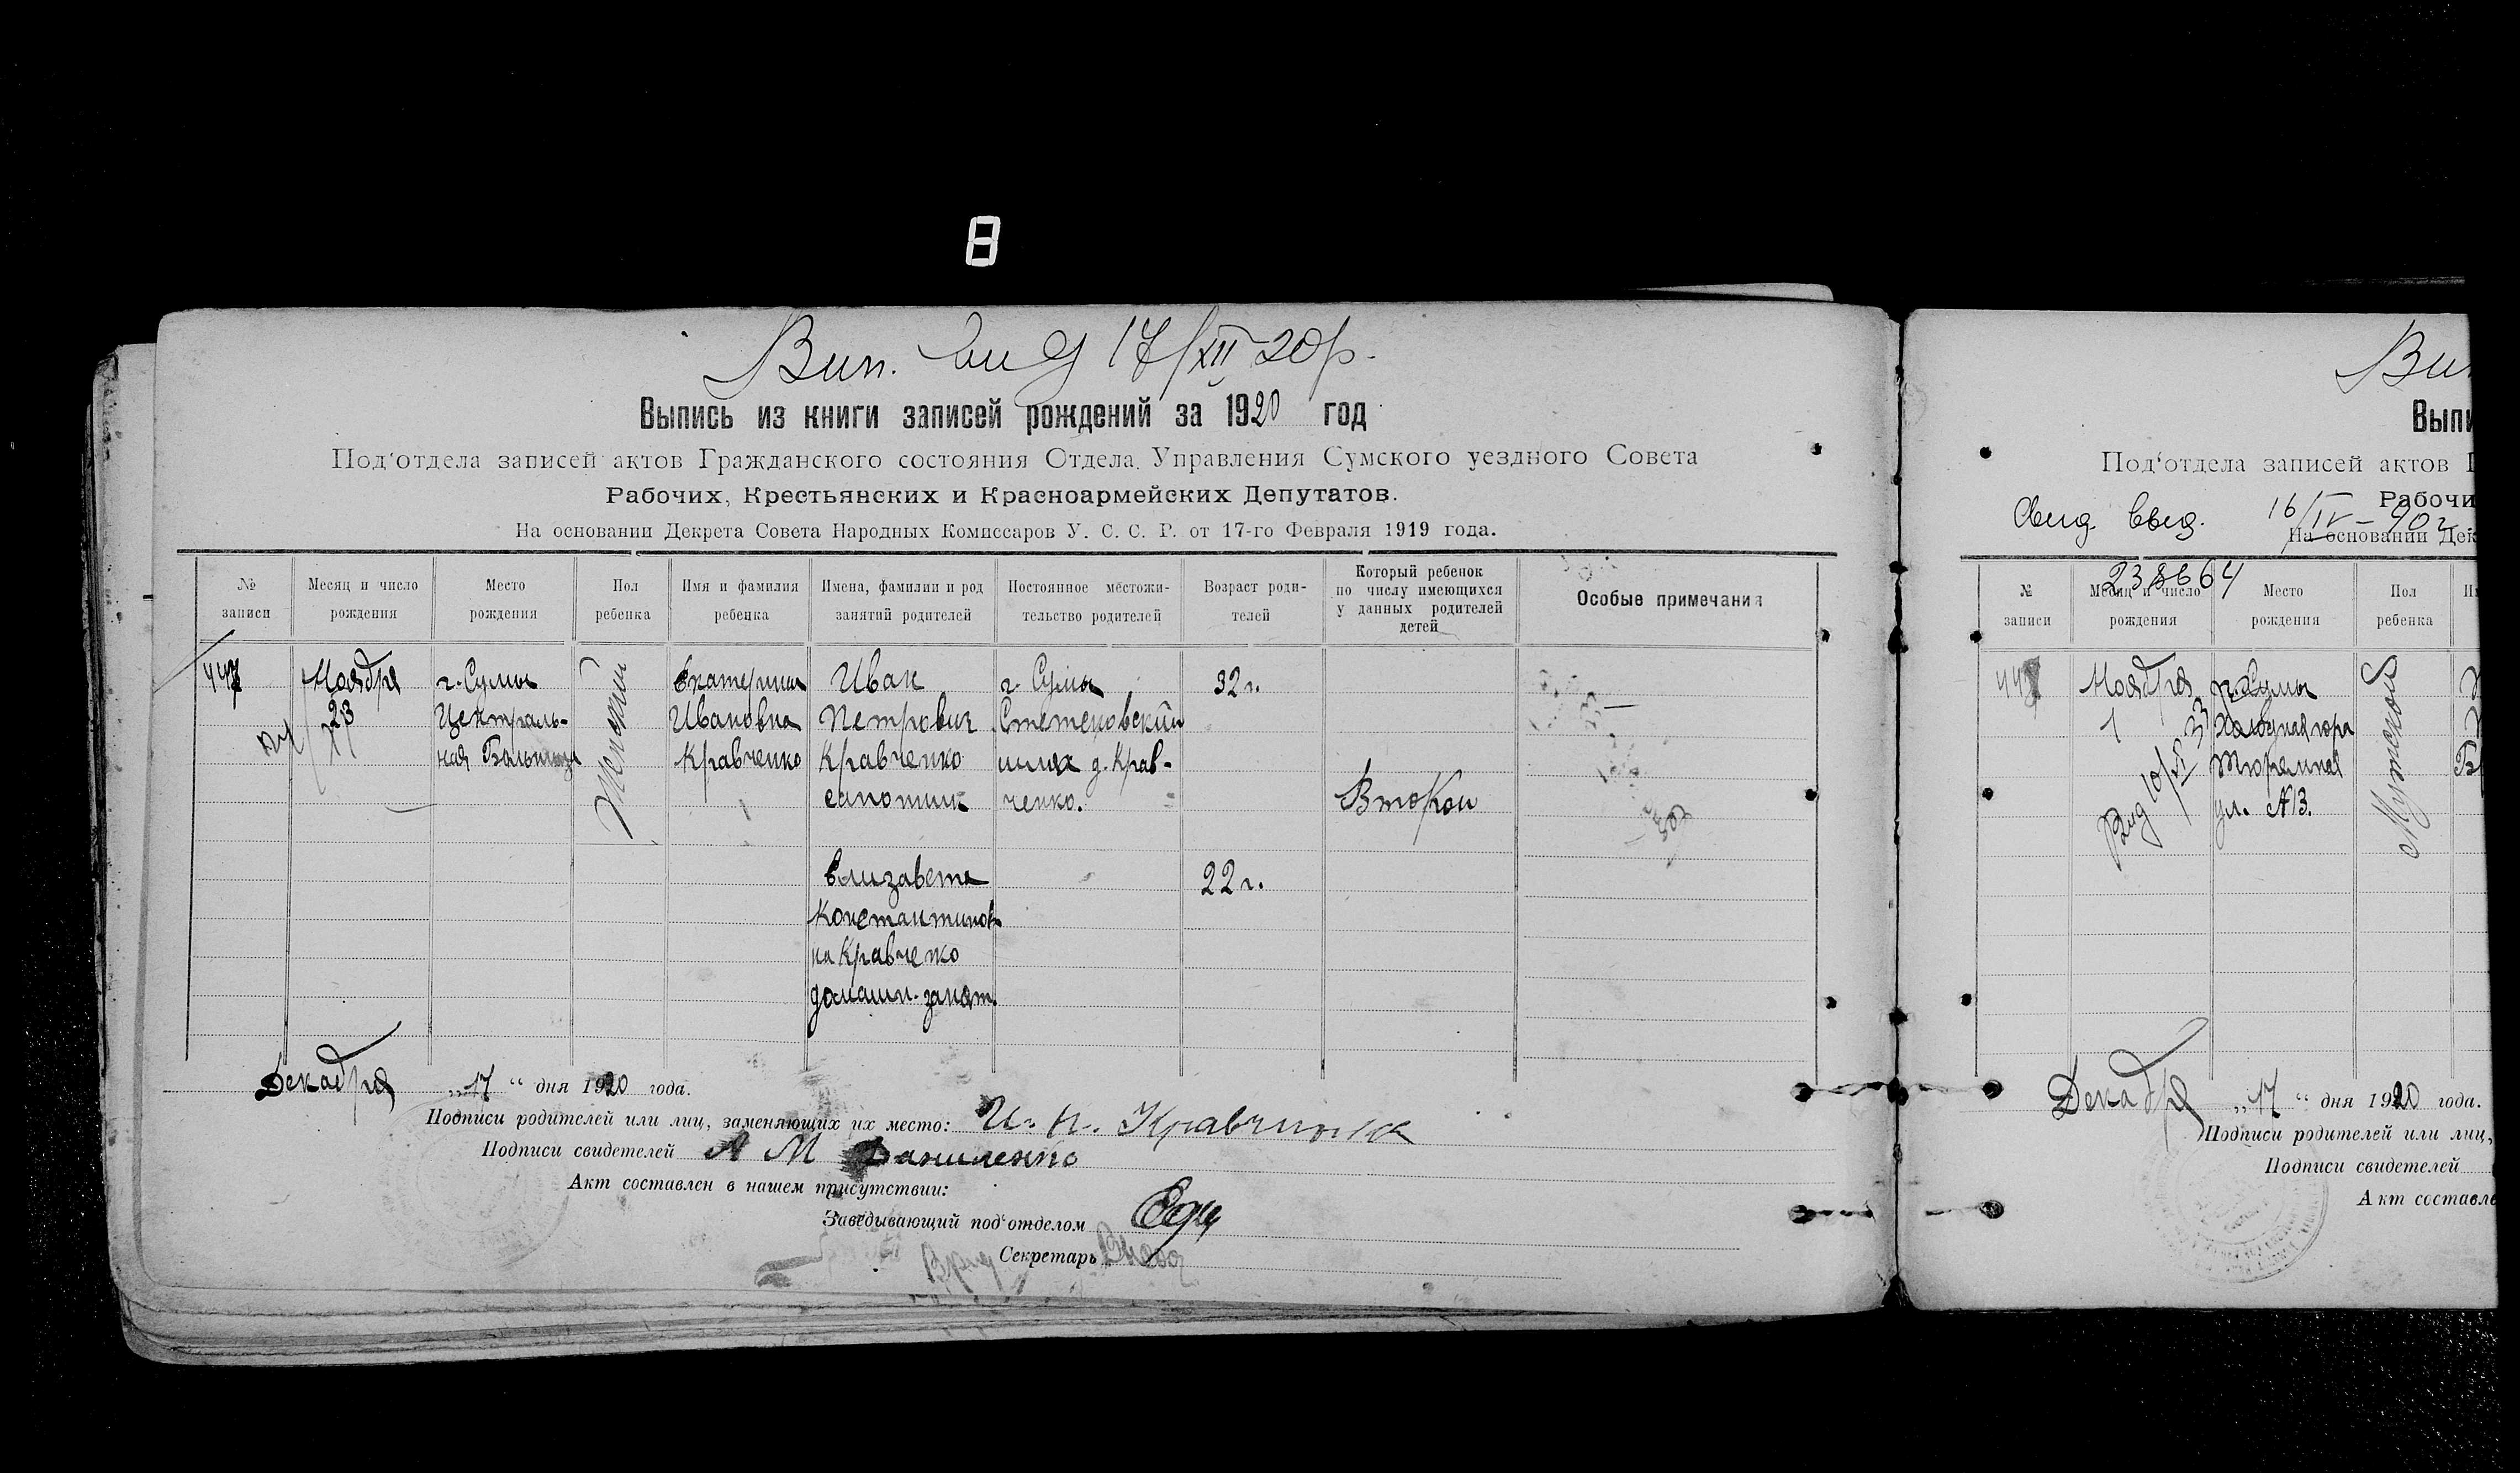 Вип. вид 17/XII 20 р.
Выпись из книги записей рождений за 1920 год
Под'отдела записей актов Гражданского состояния Отдела Управления Сумского уездного Совета
Рабочих, Крестьянских и Красноармейских Депутатов.
На основании Декрета Совета Народных Комиссаров У. С. С. Р. от 17-го Февраля 1919 года.
№ записи
Месяц и число рождения
Место рождения
Пол ребенка
Имя и фамилия ребенка
Имена, фамилии и род занятий родителей
Постоянное местожительство родителей
Возраст родителей
Который ребенок по числу имеющихся у данных родителей детей
Особые примечания
447
Ноября
23
г. Сумы
Централь-
ная Больница
Женский
Екатерина
Ивановна
Кравченко
Иван
Петрович
Кравченко
сапожник
г. Сумы
Степановский
шлях д. Крав-
ченко.
32 г.
Второй
Елизавета
Константинов
на Кравченко
домашн. занят.
22 г.
Декабря „17“ дня 1920 года.
Подписи родителей или лиц, заменяющих их место: И. П. Кравченко
Подписи свидетелей А М Даниленко
Акт составлен в нашем присутствии:
Заведывающий под'отделом
Секретарь
Вип
Выпи
Под'отдела записей актов Г
Рабочи
Свид. выд. 16/IV-40 г.
На основании Дек
№ записи
Месяц и число рождения
Место рождения
Пол ребенка
Ноября
1
г. Сумы
Холодная гора
Тюремная
ул. №3.
Мужской
Декабря „17“ дня 1920 года.
Подписи родителей или лиц,
Подписи свидетелей
Акт составле
8